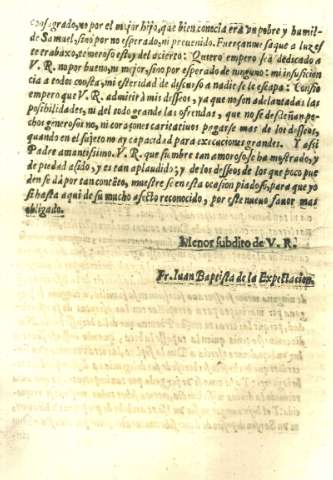 consigrado, no por el mejor hijo, que bien conocia era vn pobre y humil-
de Samuel, sinò por no esperado, ni preuenido. Fuerçanme saque a luz es
te trabaxo, temeroso estoy del acierto: Quiero empero sea dedicado a
V. R. no por bueno, ni mejor, sino por esperado de ninguno: mi insuficien
cia a todos consta, mi esteridad de discurso a nadie se le escapa: Confio
empero que V. R. admirirà mis desseos, ya que no son adelantadas las
possibilidades, ni del todo grande las ofrendas, que no se desdeñan pe-
chos generosos no, ni coraçones caritatiuos pagarse mas de los desseos,
quando en el sujeto no ay capacidad para execuciones grandes. Y assi
Padre amantissimo V. R. que siempre tan amoroso se ha mostrado, y
de piedad asido, y es tan aplaudido; y de los desseos de los que poco pue
den se dà por tan contento, muestre se en esta ocasion piadoso, para que yo
si hasta aqui de su mucho afecto reconocido, por este nueuo fauor mas
obligado.
Menor subdito de V. R.
Fr. Iuan Baptista de la Expectacion.